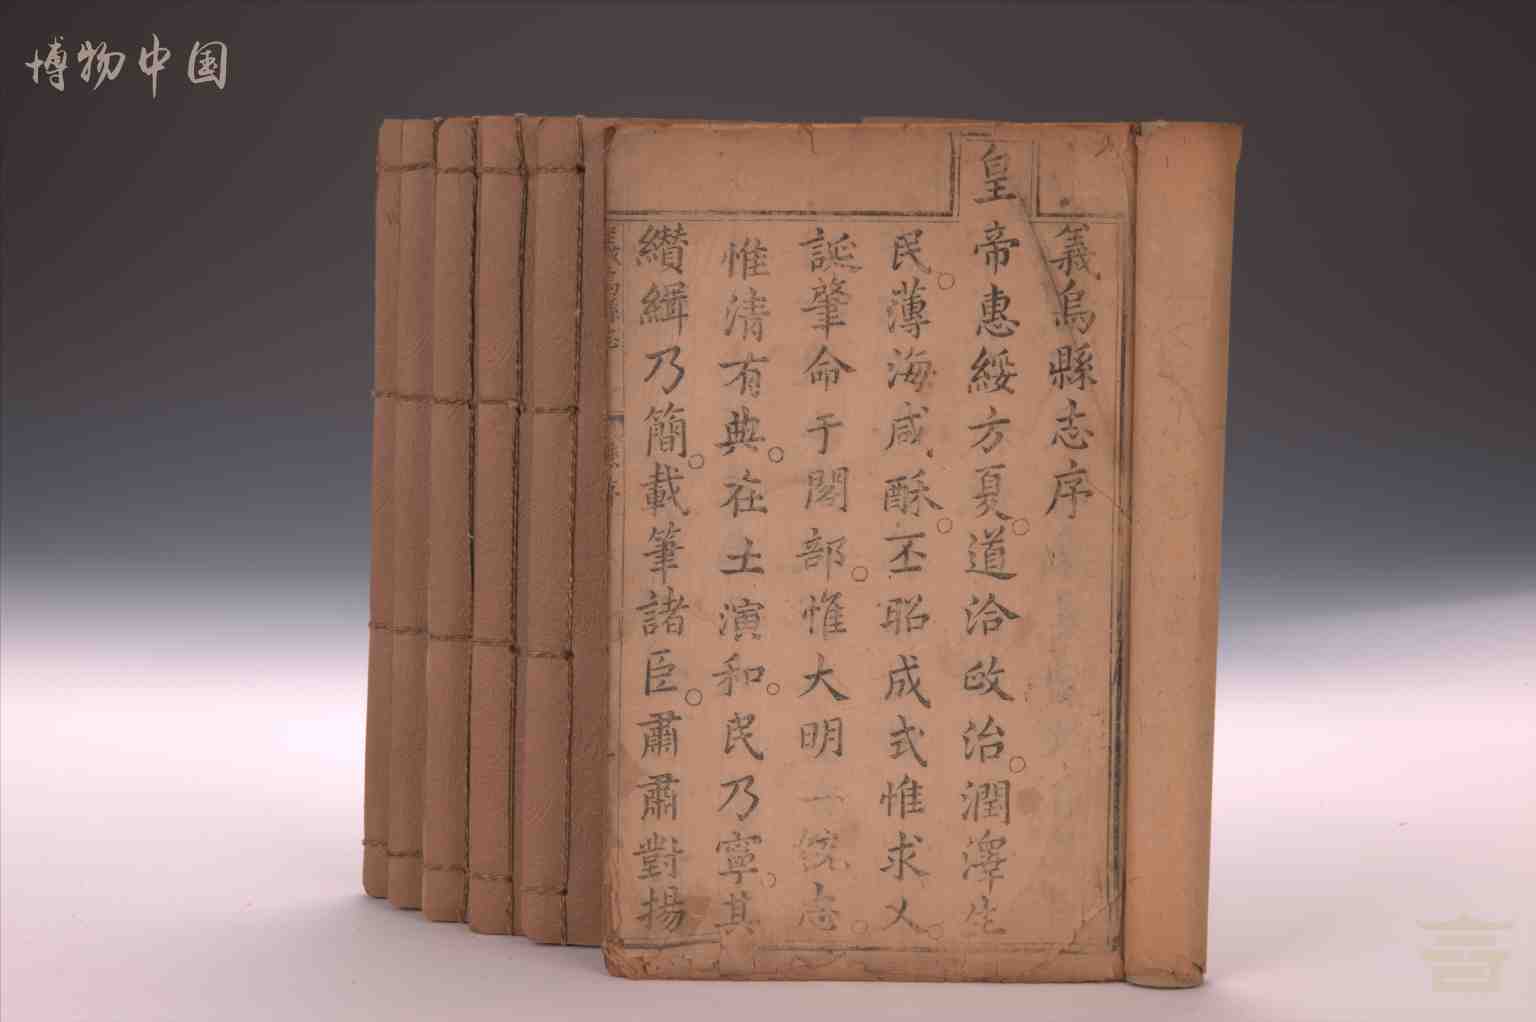 博物中国
義烏縣志序
皇帝惠綏方夏道洽政治潤澤生
民薄海咸酥丕昭成式惟求乂
誕肇命于閣部惟大明一統志
惟清有典在土演和民乃寧其
纘緝乃簡載筆諸臣肅肅對揚